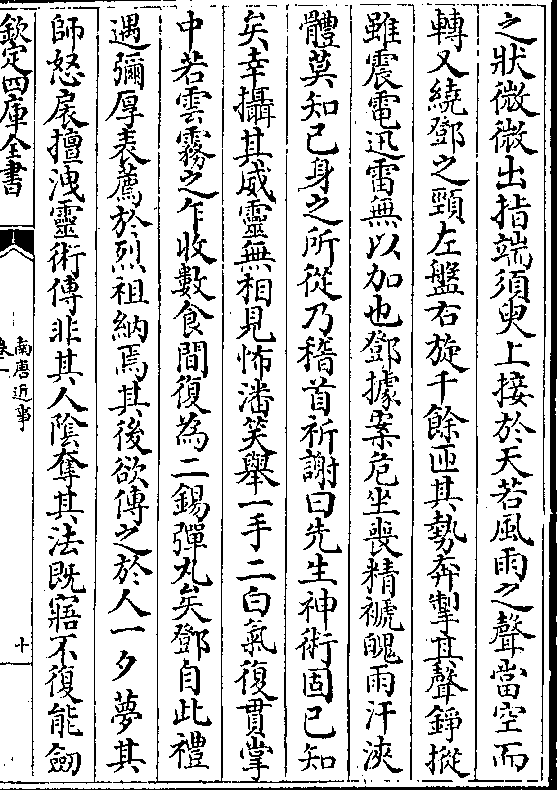 之狀微微出指端須臾上接於天若風雨之聲當空而
轉又繞鄧之頸左盤右旋千餘匝其勢奔掣其聲錚摐
雖震電迅雷無以加也鄧據案危坐喪精褫魄雨汗浹
體莫知已身之所從乃稽首祈謝曰先生神術固已知
矣幸攝其威靈無相見怖潘笑舉一手二白氣復貫掌
中若雲霧之乍收數食間復為二錫彈丸矣鄧自此禮
遇彌厚表薦於烈祖納焉其後欲傳之於人一夕夢其
師怒扆擅洩靈術傳非其人陰奪其法既寤不復能劒
欽定四庫全書
南唐近事
卷一
十